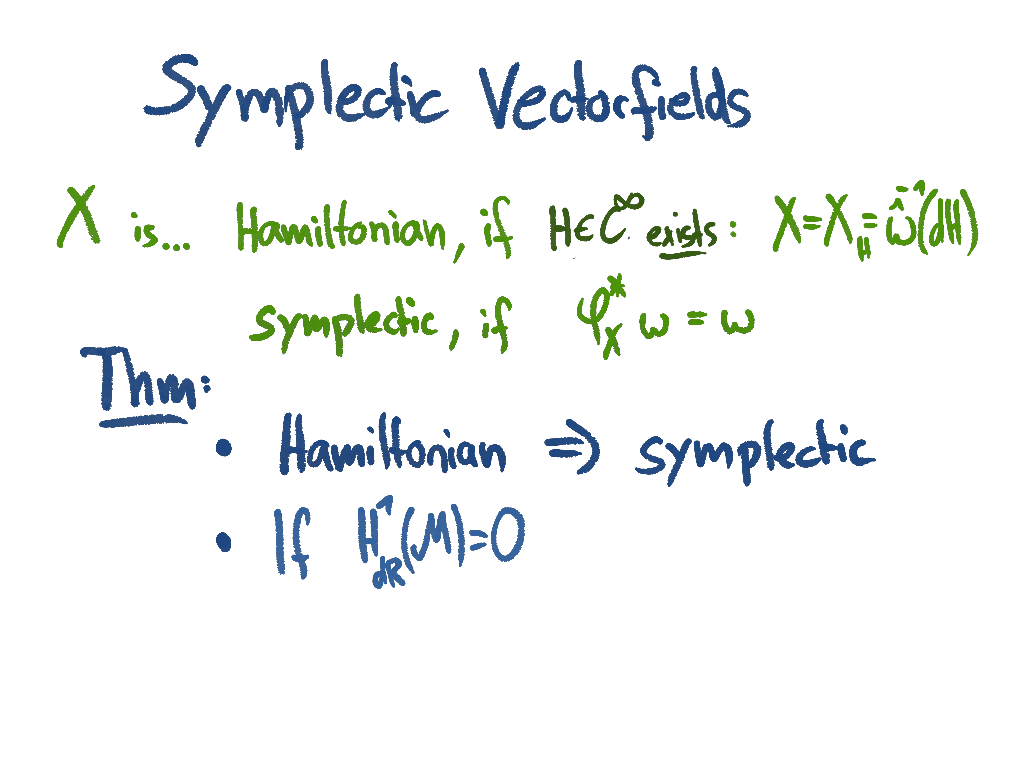 Symplectic Vectorfields
X is... Hamiltonian, if H∈C^∞ exists: X=X_H=ω̂^{-1}(dH)
symplectic, if φ_X^* ω = ω
Thm:
• Hamiltonian ⇒ symplectic
• If H^1_{dR}(M)=0